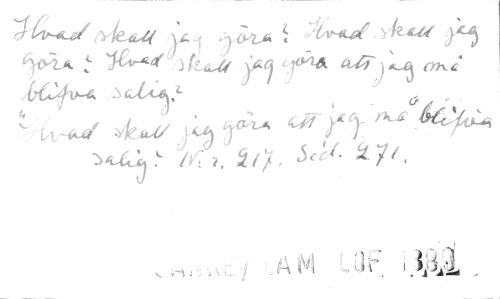 Hvad skall jag göra? Hvad skall jag
göra? Hvad skall jag göra att jag må
blifva salig?
"Hvad skall jag göra att jag må" blifva
salig? N:r. 217. Sid. 271.
LAM LOF 1880